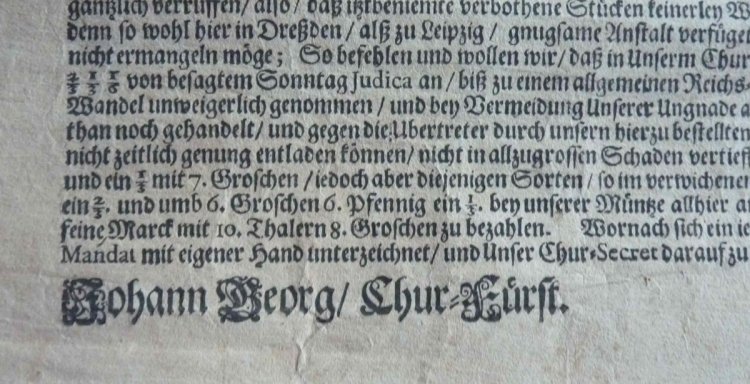 gäntzlich verruffen/ also/ daß itztbeniemte verbothene Stücken keinerley
denn so wohl hier in Dreßden/ alß zu Leipzig/ gnugsame Anstalt verfüge
nicht ermangeln möge; So befehlen und wollen wir/ daß in Unserm Chur
⅔ ⅓ ⅙ von besagtem Sonntag Judica an/ biß zu einem allgemeinen Reichs-
Wandel unweigerlich genommen/ und bey Vermeidung Unserer Ungnade a
than noch gehandelt/ und gegen die Ubertreter durch unsern hierzu bestellten
nicht zeitlich genung entladen können/ nicht in allzugrossen Schaden vertief
und ein ⅓ mit 7. Groschen/ iedoch aber diejenigen Sorten/ so im verwichene
ein ⅔. und umb 6. Groschen 6. Pfennig ein ⅓. bey unserer Müntze allhier a
feine Marck mit 10. Thalern 8. Groschen zu bezahlen. Wornach sich ein ie
Mandat mit eigener Hand unterzeichnet/ und Unser Chur-Secret darauf zu
Johann Georg/ Chur-Fürst.